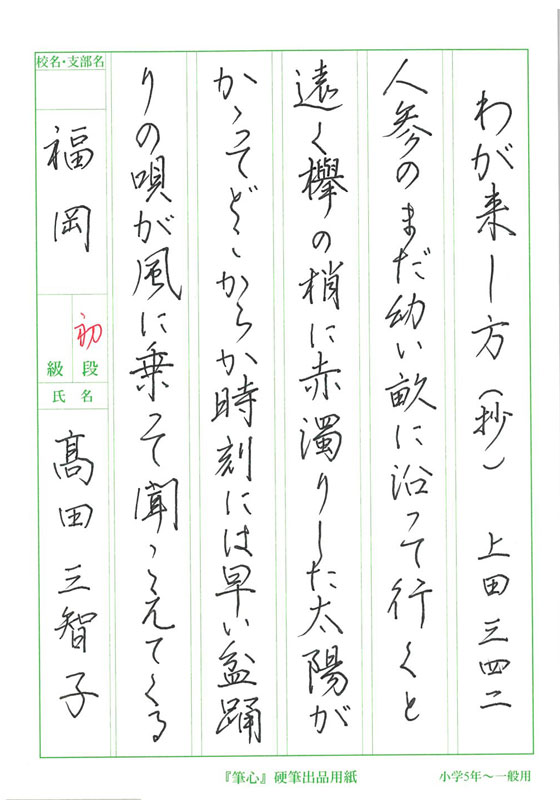 わが来し方(抄) 上田三四二
人参のまだ幼い畝に沿って行くと
遠く欅の梢に赤濁りした太陽が
かゝってどこからか時刻には早い盆踊
りの唄が風に乗って聞こえてくる
校名・支部名
福岡
初
段
級
氏名
髙田三智子
『筆心』硬筆出品用紙
小学5年〜一般用